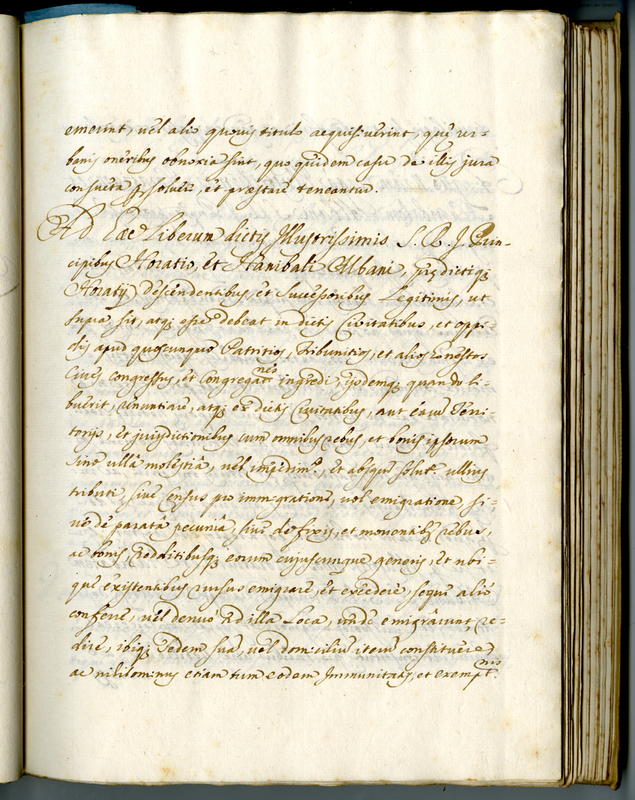 emerint, vèl alio quovis titulo acquisiverint, quę ur=
banis oneribus obnoxia sint, quo quidem casu de illis jura
consueta p̱solvere, et præstare teneantur.
Ad hæc Liberum dictis Illustrissimis S. R. I. Prin=
cipibus Horatio, et Hanibali Albani, prędictiq;
Horatij descendentibus, et Successoribus Legitimis, ut
supra sit, atq; esse debeat in dictis Civitatibus, et oppi=
dis apud quoscunque Patritios, Tribunitios, et alios honestos
Cives congressus, et Congregat.nes ingredi, ijsdemq; quando li=
buerit, renuntiare, atq; ex dictis Civitatibus, aut earum Terri=
torijs, et jurisdictionibus cum omnibus rebus, et bonis ipsorum
sine ulla molestiâ, vel impedim.o, et absque solut.e ullius
tributi, sive Census pro immigratione, vel emigratione, si=
ve de parata pecuniâ, sive de fixis, et moventib; rebus,
ac bonis, redditibusq; eorum cujuscunque generis, et ubi=
que existentibus rursus emigrare, et excedere, seque alió
conferre, vèl denuó ad illa Loca, unde emigrârunt, re=
dire, ibiq; sedem suam, vel domicilium iterum constituere,
ac nihilominus etiam tum eodem Immunitatis, et exempt.nis